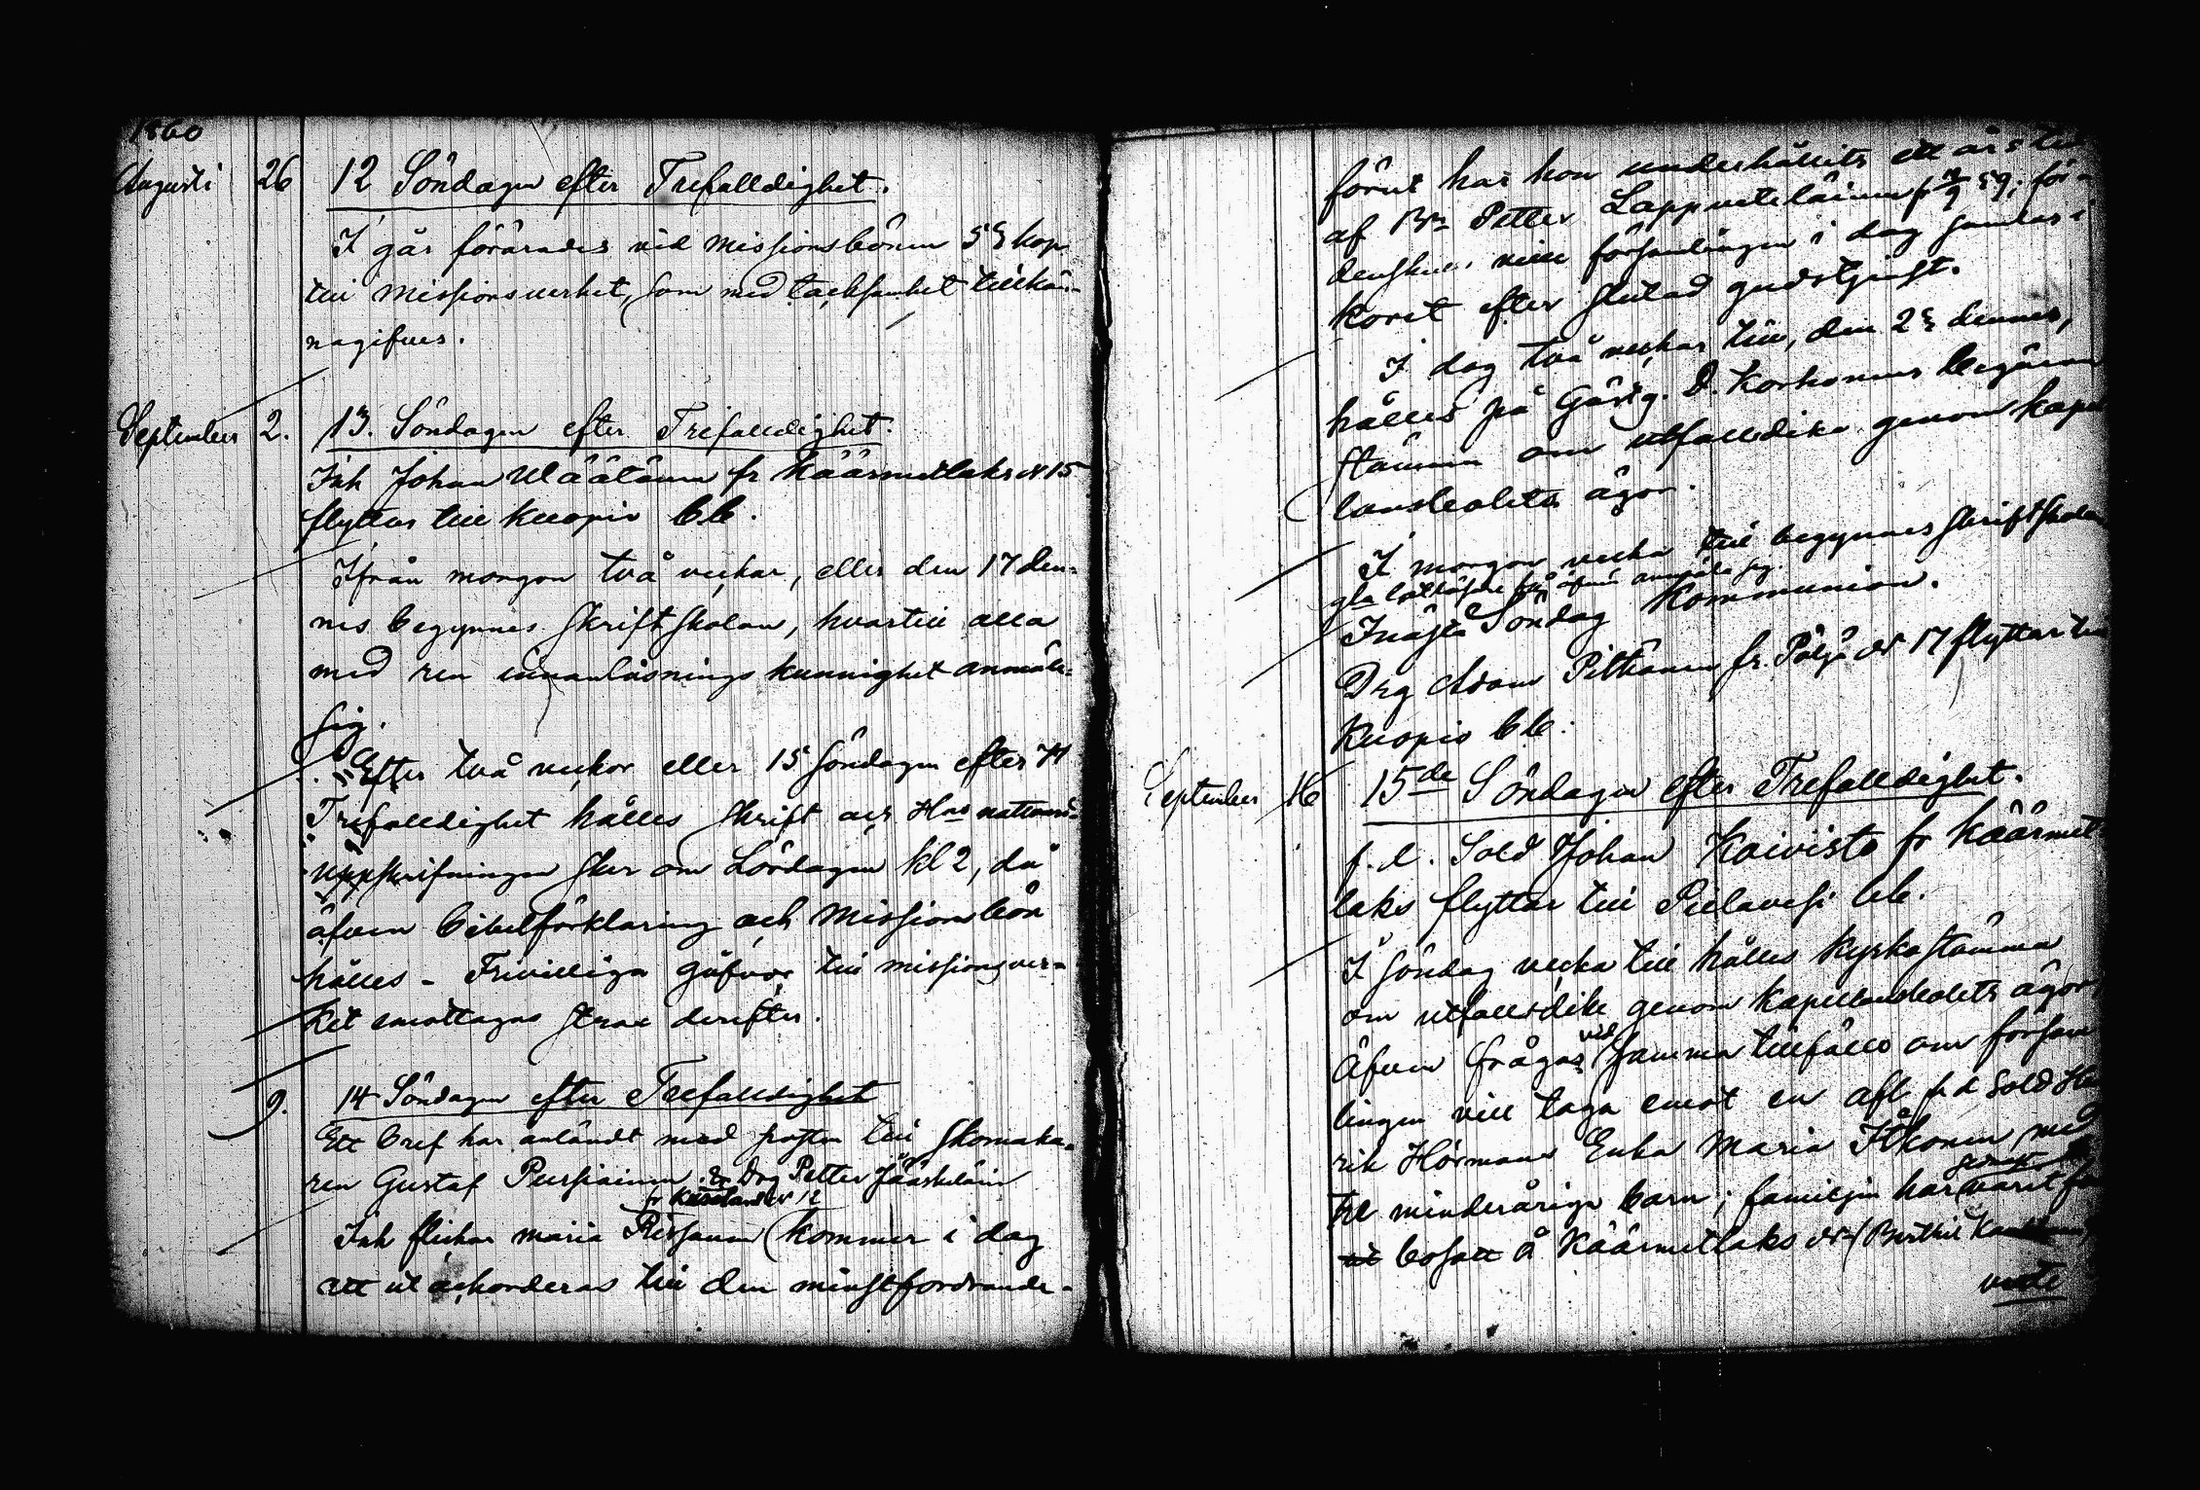 1860
Augusti 26 12 Söndagen efter Trefalldighet.
I går förärades vid missionsbönen 53 kop
till missionsverket, som med tacksamhet tillkän-
nagifves.
September 2. 13. Söndagen efter Trefalldighet.
Inh Johan Väätäinen fr Käärmetlaks N 15
flyttar till Kuopio
Ifrån morgon två veckar, eller den 17 den-
nes begynnes Skriftskolan, hvartill alla
med ren innanläsnings kunnighet anmäle
sig.
Efter två veckor eller 15 Söndagen efter H
Trefalldighet hålles Skrift och Hrs nattvard
uppskrifningen sker om Lördagen kl 2, då
äfven bibelförklaring och Missionsbön
hålles - Frivilliga gåfvor till missionsver-
ket emottagas strax derefter.
9. 14 Söndagen efter Trefalldighet
Ett bref har anländt med posten till Skomaka-
ren Gustaf Pursiainen & Drg Petter Jääskeläin
fr N 12
Inh flickan Maria Rissanen (kommer i dag
att utackorderas till den minstfordrande -
förut har hon underhållits ett års tid
af Bn Petter Lappveteläinen fr
församlingen i dag samlas i
koret efter slutad gudstjenst.
I dag två veckar till, den 23 dennes,
hålles på Gästg. D. Korhonens begäran
stämma om utfallsdike genom kapel
lansbolets ägor.
I morgon vecka till begynnes Skriftskolan
anmäla sig.
Inästa Söndag Kommunion.
Drg Adam Pitkänen fr. Pöljä N 17 flyttar till
Kuopio
September 16 15de Söndagen efter Trefalldighet.
f. d. Sold Johan Koivisto fr Käärmet
laks flyttar till Pielavesi
I söndag vecka till hålles Kyrkostämma
om utfallsdike genom kapellansbolets ägor,
vid
Äfven frågas samma tillfälle om församl
lingen vill taga emot en afl f d Sold Hen
rik Hörmans Enka Maria Itkonen med
tre minderåriga barn; familjen har varit
bosatt å Käärmetlaks
verte